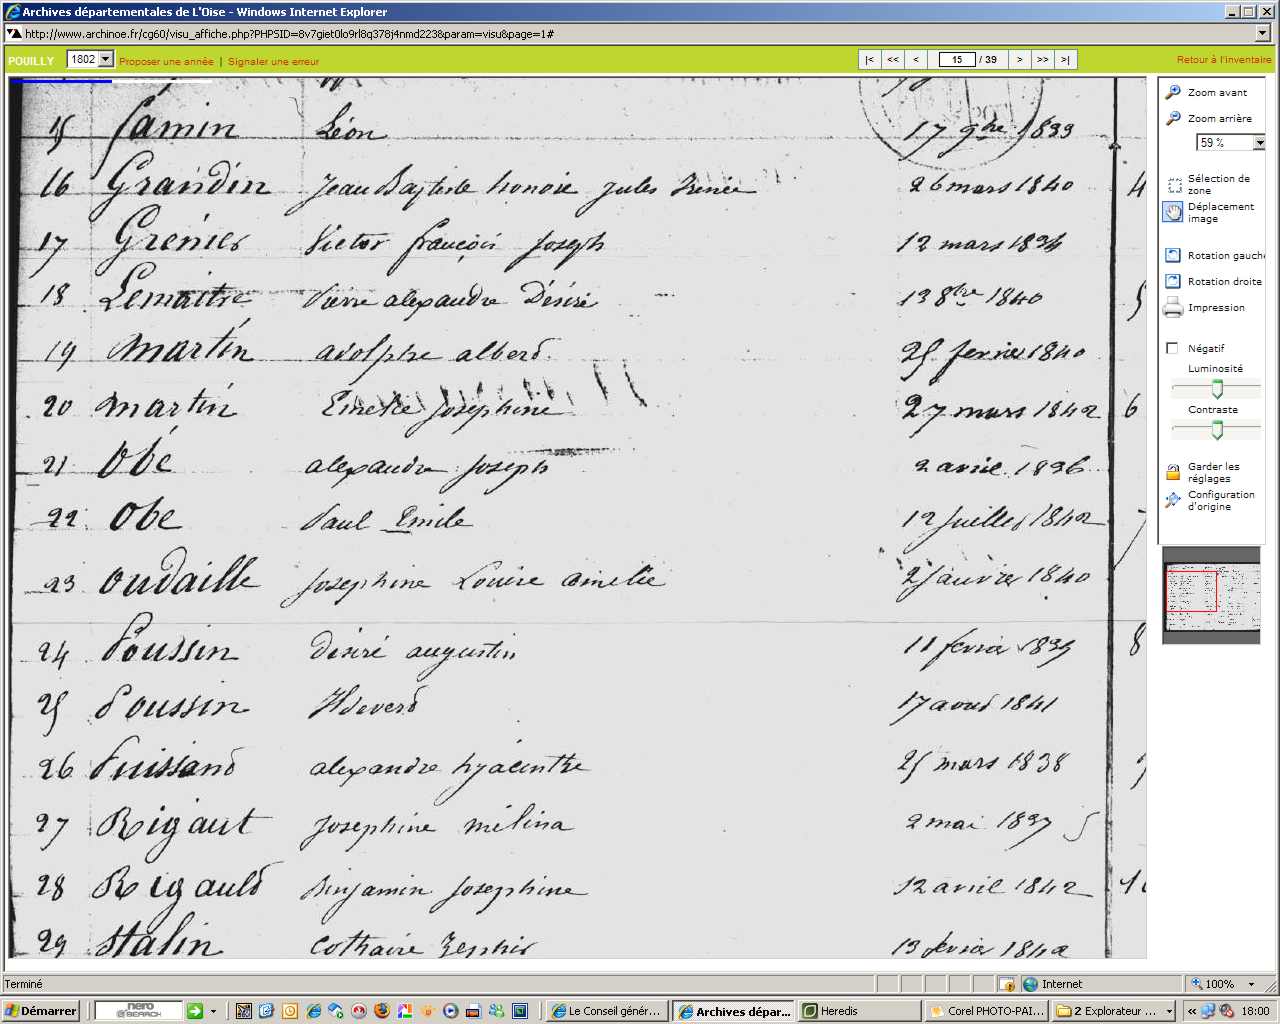 Archives départementales de L'Oise - Windows Internet Explorer
http://www.archinoe.fr/cg60/visu_affiche.php?PHPSID=8v7giet0lo9rl8q378j4nmd223&param=visu&page=1#
POUILLY 1802 Proposer une année | Signaler une erreur |< << < 15 / 39 > >> >| Retour à l'inventaire
15 famin Léon 17 9bre 1839
16 Grandin Jean Baptiste honoré jules Irénée 26 mars 1840 4
17 Grenier Victor françois Joseph 12 mars 1834
18 Lemaitre Pierre alexandre Désiré 13 8bre 1840 5
19 Martin adolphe alberd 25 fevrier 1840
20 Martin Josephine 27 mars 1842 6
21 Obé alexandre Joseph 2 avril 1836
22 Obé Paul Emile 12 Juillet 1842 7
23 oudaille Josephine Louise amelie 2 Janvier 1840
24 Poussin Désiré augustin 11 fevrier 1839 8
25 Poussin 17 aout 1841
26 Puissand alexandre hyacinthe 25 mars 1838
27 Rigaut Josephine mélina 2 mai 1837
28 Rigauld Binjamin Josephine 12 avril 1842 10
29 Stalin Lothaire Zephir 13 fevrier 1842
Zoom avant
Zoom arrière
59 %
Sélection de
zone
Déplacement
image
Rotation gauche
Rotation droite
Impression
Négatif
Luminosité
Contraste
Garder les
réglages
Configuration
d'origine
Terminé Internet 100%
Démarrer nero SEARCH Le Conseil génér... Archives dépar... Heredis Corel PHOTO-PAI... 2 Explorateur ... 18:00